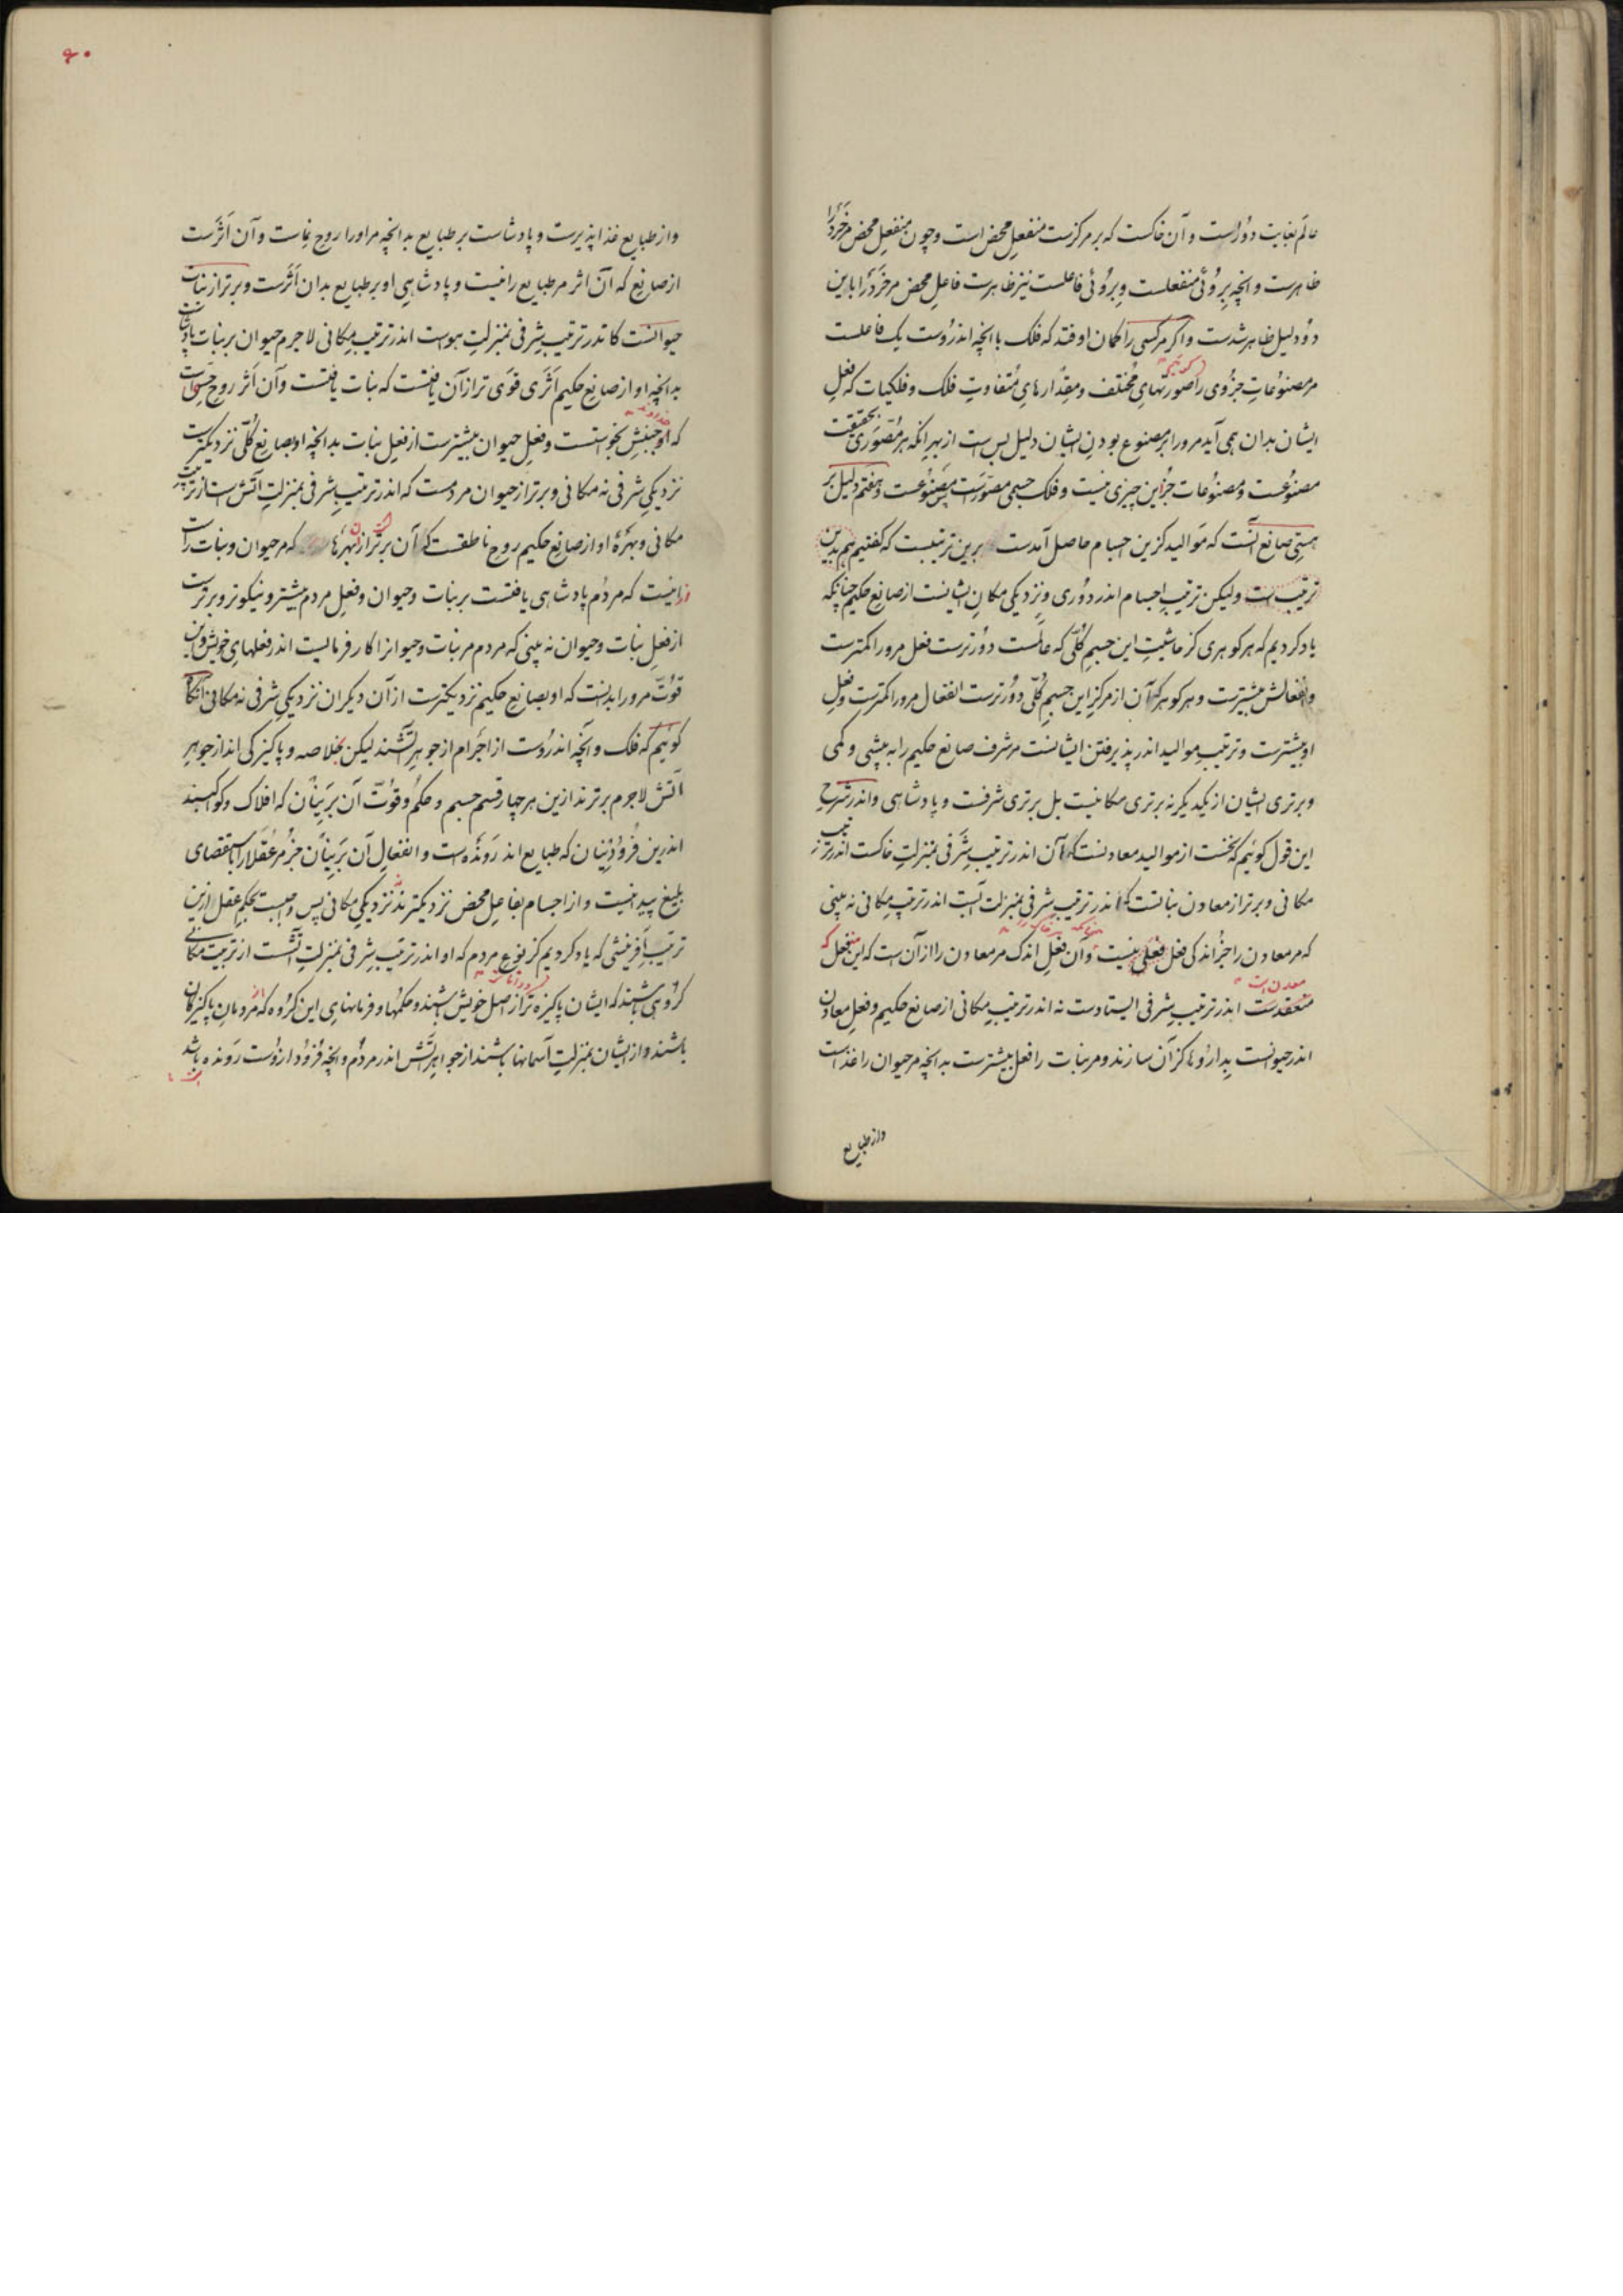 عالم بغایت دورست و آن خاکست که بر مرکزست منفعل محض است و چون منفعل محض مر خرد را
ظاهرست و انچه بروئی منفعلست و بروئی فاعلست نیز ظاهرست فاعل محض مر خرد را با این
دو دلیل ظاهر شدست و اکر مر کسی را کمان اوفتد که فلک با انچه اندروست یک فاعلست
مر مصنوعات جزوی را صورتهای مختلف و مقدارهای متفاوت فلک و فلکیات که فعل
ایشان بدان همی آید مرورا بر مصنوع بودن ایشان دلیل بس است از بهر انکه هر مصوری بحقیقت
مصنوعست و مصنوعات جز این چیزی نیست و فلک جسمی مصورست پس مصنوعست و هفتم دلیل بر
هستی صانع آنست که موالید کزین اجسام حاصل آمدست برین ترتیبست که کفتیم هم بدین
ترتیب است ولیکن ترتیب اجسام اندر دوری و نزدیکی مکان ایشانست از صانع حکیم چنانکه
یاد کردیم که هر کوهری کز حاشیت این جسم کلّی که عالمست دورترست فعل مرورا کمترست
و انفعالش بیشترست و هر کوهر که آن از مرکز این جسم کلّی دورترست انفعال مرورا کمترست و فعل
او بیشترست و ترتیب موالید اندر پذیرفتن ایشانست مر شرف صانع حکیم را به پیشی و کمی
و برتری ایشان از یکدیکر نه برتری مکانیست بل برتری شرفست و پادشاهی و اندر شرح
این قول کوئیم که نخست از موالید معادنست که آن اندر ترتیب شرفی بمنزلت خاکست اندر ترتیب
مکانی و برتر از معادن نباتست که اندر ترتیب شرفی بمنزلت آبست اندر ترتیب مکانی نه بینی
که مر معادن را جز اندکی فعل فعلی نیست و آن فعل اندک مر معادن را از آن است که این منفعل که
معدن است
منعقدست اندر ترتیب شرفی ایستادست نه اندر ترتیب مکانی از صانع حکیم و فعل معادن
اندر حیوانست بداروها کز آن سازند و مر نبات را فعل بیشترست بدانچه مر حیوان را غذاست
واز طبایع
۶۰
واز طبایع غذا پذیرست و پادشاست بر طبایع بدانچه مر اورا روح نماست و آن اثرست
از صانع که آن اثر مر طبایع را نیست و پادشاهی او بر طبایع بدان اثرست و برتر از نبات
حیوانست کاندر ترتیب شرفی بمنزلت هواست اندر ترتیب مکانی لاجرم حیوان بر نبات پادشاست
بدانچه او از صانع حکیم اثری قوی تر از آن یافتست که نبات یافتست و آن اثر روح حسی است
خداوند
که او جنبش بخواستست و فعل حیوان بیشترست از فعل نبات بدانچه او بصانع کلّی نزدیکترست
نزدیکی شرفی نه مکانی و برتر از حیوان مردمست که اندر ترتیب شرفی بمنزلت آتش است از ترتیب
مکانی و بهرهٔ او از صانع حکیم روح ناطقست که آن برتر از آن بهره‌ها که مر حیوان و نبات راست
ازینست که مردم پادشاهی یافتست بر نبات و حیوان و فعل مردم بیشتر و نیکوتر و برترست
از فعل نبات و حیوان نه بینی که مردم مر نبات و حیوانرا کار فرمائیست اندر فعلهای خویش و این
قوّت مرورا بدانست که او بصانع حکیم نزدیکترست از آن دیکران نزدیکی شرفی نه مکانی آنکاه
کوئیم که فلک و آنچه اندروست از اجرام از جوهر آتشند لیکن بخلاصه و پاکیزکی اند از جوهر
آتش لاجرم برترند ازین هر چهار قسم جسم و حکم و قوّت آن برینان که افلاک و کواکبند
اندرین فرودینان که طبایع اند رونده است و انفعال آن برینان جز مر عقلا را باستقصای
بلیغ پیدا نیست و از اجسام بفاعل محض نزدیکترند نزدیکی مکانی پس واجبست بحکم عقل ازین
ترتیب آفرینشی که یاد کردیم کز نوع مردم که او اندر ترتیب شرفی بمنزلت آتشست از ترتیب مکانی
کروهی باشند که ایشان پاکیزه تر از اصل خویش باشند و حکمها و فرمانهای این کروه که مردمان پاکیزکان
باشند و از ایشان بمنزلت آسمانها باشند از جواهر آتش اندر مردم و انچه فرود ازوست رونده باشد